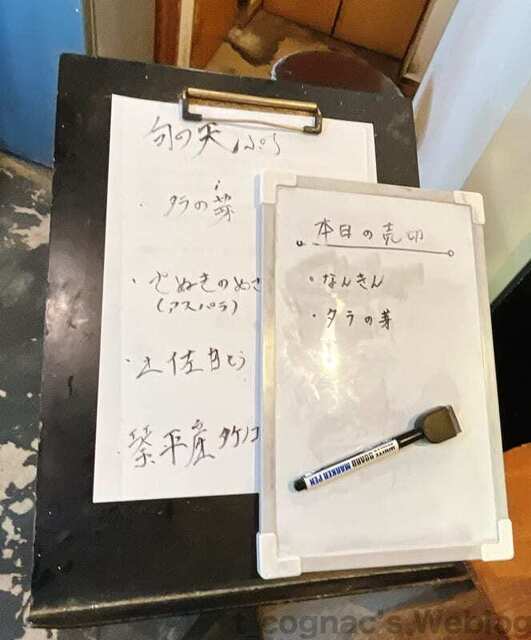 旬の天ぷら
・タラの芽
・さぬきのめざ
(アスパラ)
・土佐甘とう
・琴平産タケノコ
本日の売切
・なんきん
・タラの芽
WHITE BOARD MARKER PEN
cognac's Weblog